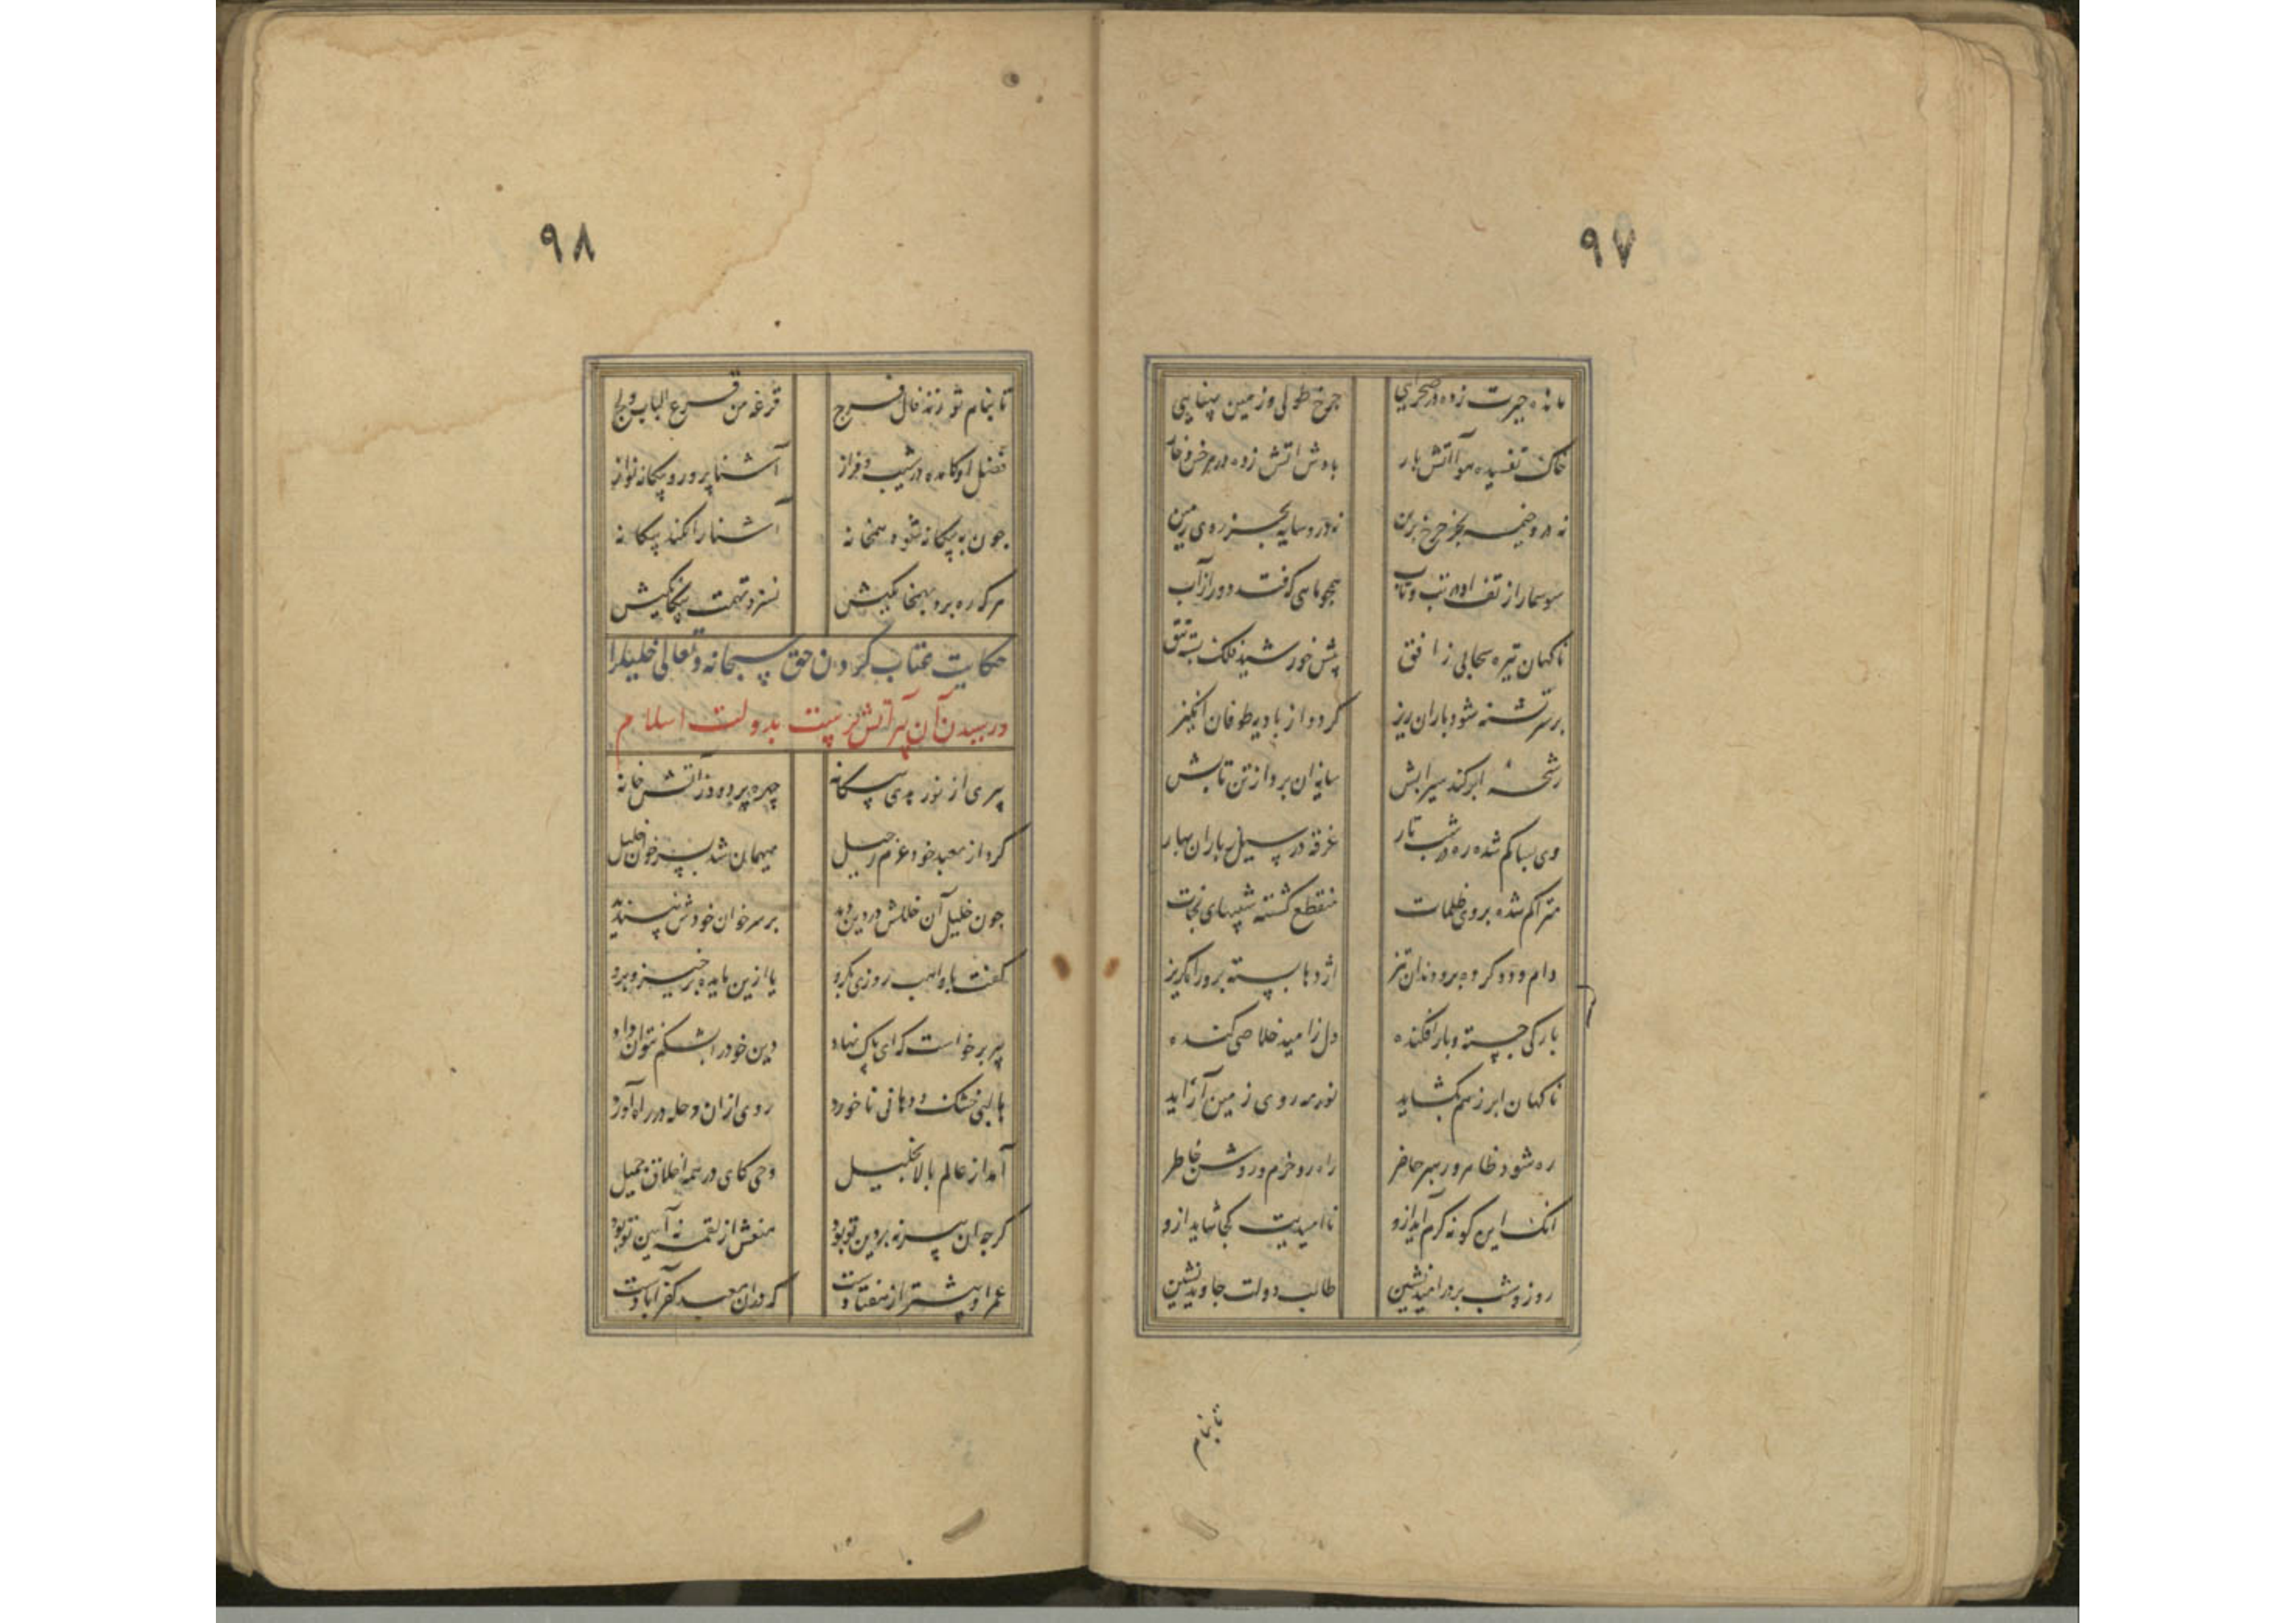 ۹۷
مانده حیرت زده در صحرایی چرخ طولی و زمین پهنایی
خاک تفسیده هوا آتش بار بادش آتش زده در هر خس و خار
نه درو خیمه بجز چرخ برین نه درو سایه بجز زیر زمین
سوسمار از تف او در تب و تاب همچو ماهی که فتد دور از آب
ناکهان تیره سحابی ز افق پیش خورشید فلک بسته تتق
بر سر تشنه شود باران ریز کردد از بادیه طوفان انکیز
رشحهٔ ابر کند سیرابش سایه آن برد از تن تابش
وی بسا کم شده ره در شب تار غرقه در سیل ز باران بهار
متراکم شده بر وی ظلمات منقطع کشته سببهای نجات
دام و دد کرده برو دندان تیز اژدها بسته برو راه کریز
بارکی جسته و بار افکنده دل ز امید خلاصی کنده
ناکهان ابر ز هم بکشاید نور مه روی زمین آراید
ره شود ظاهر و رهبر حاضر راه رو خرم و روشن خاطر
انک این کونه کرم آید ازو ناامیدیت کجا شاید ازو
روز و شب بر در امید نشین طالب دولت جاوید نشین
تا بنام
۹۸
تا بنام تو زند فال فرج قرعه من قرع الباب ولج
فضل او کامده در شیب و فراز آشنا پرور و بیکانه نواز
چون به بیکانه شود همخانه آشنا را نکند بیکانه
هر که ره برد بهمخانکیش نسزد تهمت بیکانکیش
حکایت عتاب کردن حق سبحانه و تعالی خلیل را
در رسیدن آن پیر آتش پرست بدولت اسلام
پیری از نور هدی بیکانه چهره پر دود ز آتش خانه
کرد از معبد خود عزم رحیل میهمان شد بسر خوان خلیل
چون خلیل آن خللش در دین دید بر سر خوان خودش نپسندید
کفت با واهب روزی بکرو یا ازین مایده برخیز و برو
پیر برخاست که ای پاک نهاد دین خود را بشکم نتوان داد
با لبی خشک و دهانی ناخورد روی ازان مرحله در راه آورد
آمد از عالم بالا بخلیل وحی کای در همه اخلاق جمیل
کرچه آن پیر نه بر دین تو بود منعش از لقمه نه آیین تو بود
عمر او بیشتر از هفتادست که دران معبد کفر آبادست